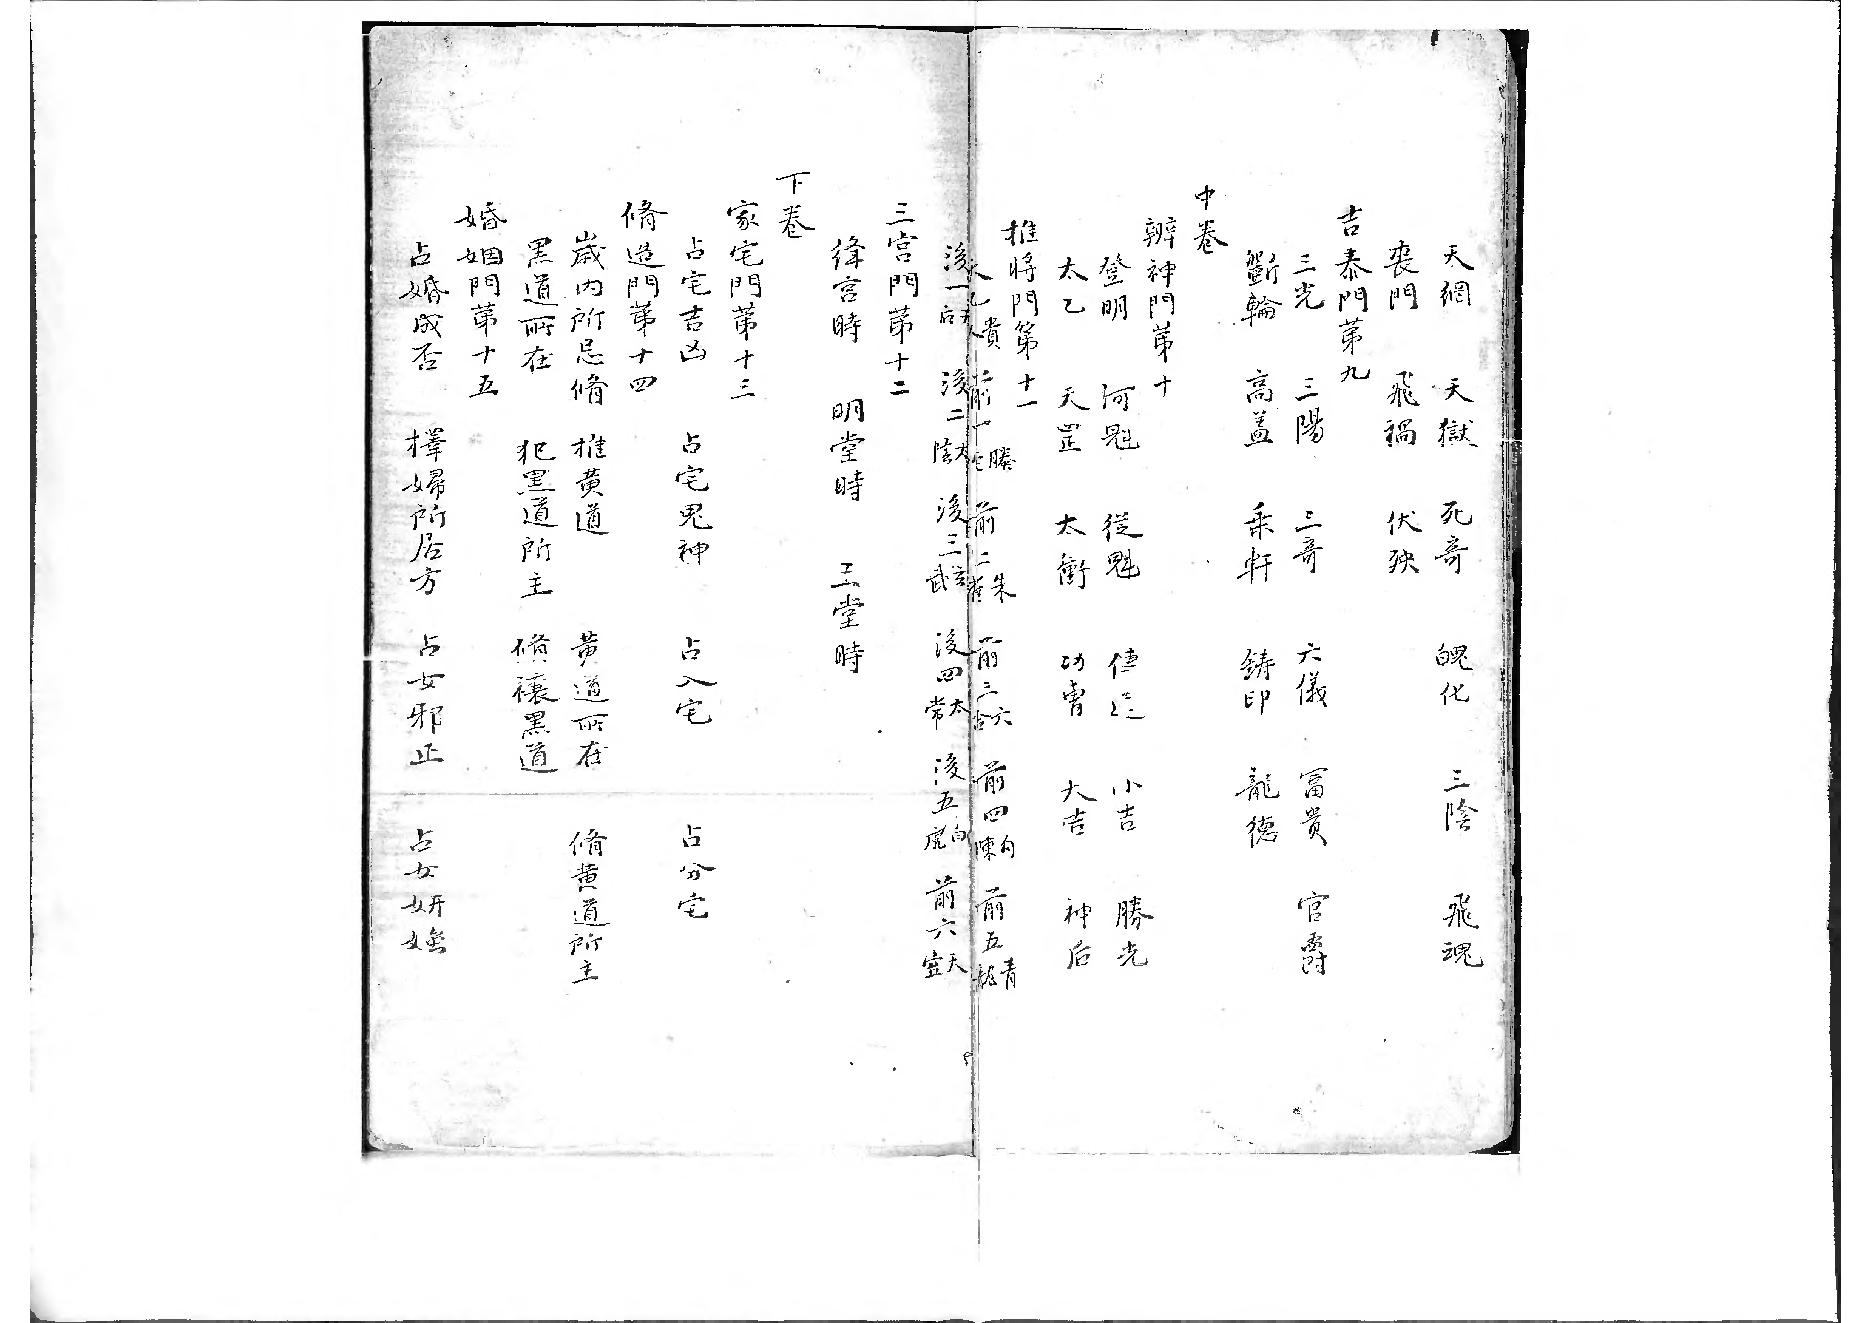 天網 天獄 死奇 魄化 三陰 飛魂
喪門 飛禍 伏殃
吉泰門第九
三光 三陽 三奇 六儀 富貴 官爵
斵輪 高盖 乗軒 鋳印 龍徳
中巻
辨神門第十
登明 河魁 従魁 傳送 小吉 勝光
太乙 天罡 太衝 功曹 大吉 神后
推将門第十一
天乙貴人 前一螣虵 前二朱雀 前三六合 前四勾陳 前五青龍
後一天后 後二太陰 後三玄武 後四太常 後五白虎 前六天空
三宮門第十二
絳宮時 明堂時 玉堂時
下巻
家宅門第十三
占宅吉凶 占宅鬼神 占入宅 占分宅
脩造門第十四
歳内所忌脩 推黄道 黄道所在 脩黄道所主
黒道所在 犯黒道所主 脩禳黒道
婚姻門第十五
占婚成否 擇婦所居方 占女邪正 占女妍媸